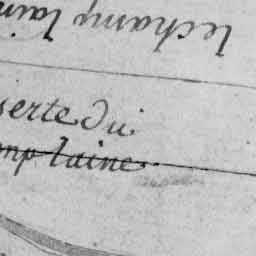 lechamp lain
serte du
mp laine